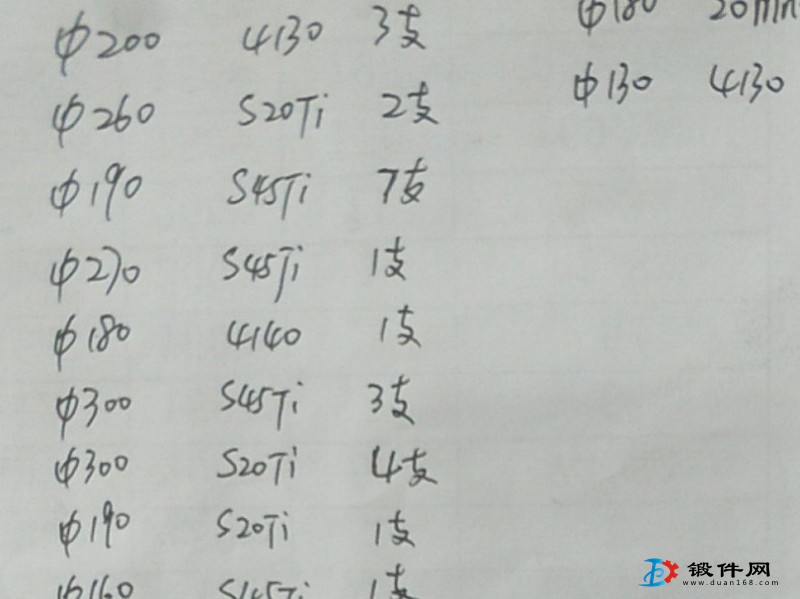 φ200 4130 3支
φ260 S20Ti 2支
φ190 S45Ti 7支
φ270 S45Ti 1支
φ180 4140 1支
φ300 S45Ti 3支
φ300 S20Ti 4支
φ190 S20Ti 1支
φ160 S45Ti 1支
φ180
φ130 4130
锻件网
www.duan168.com